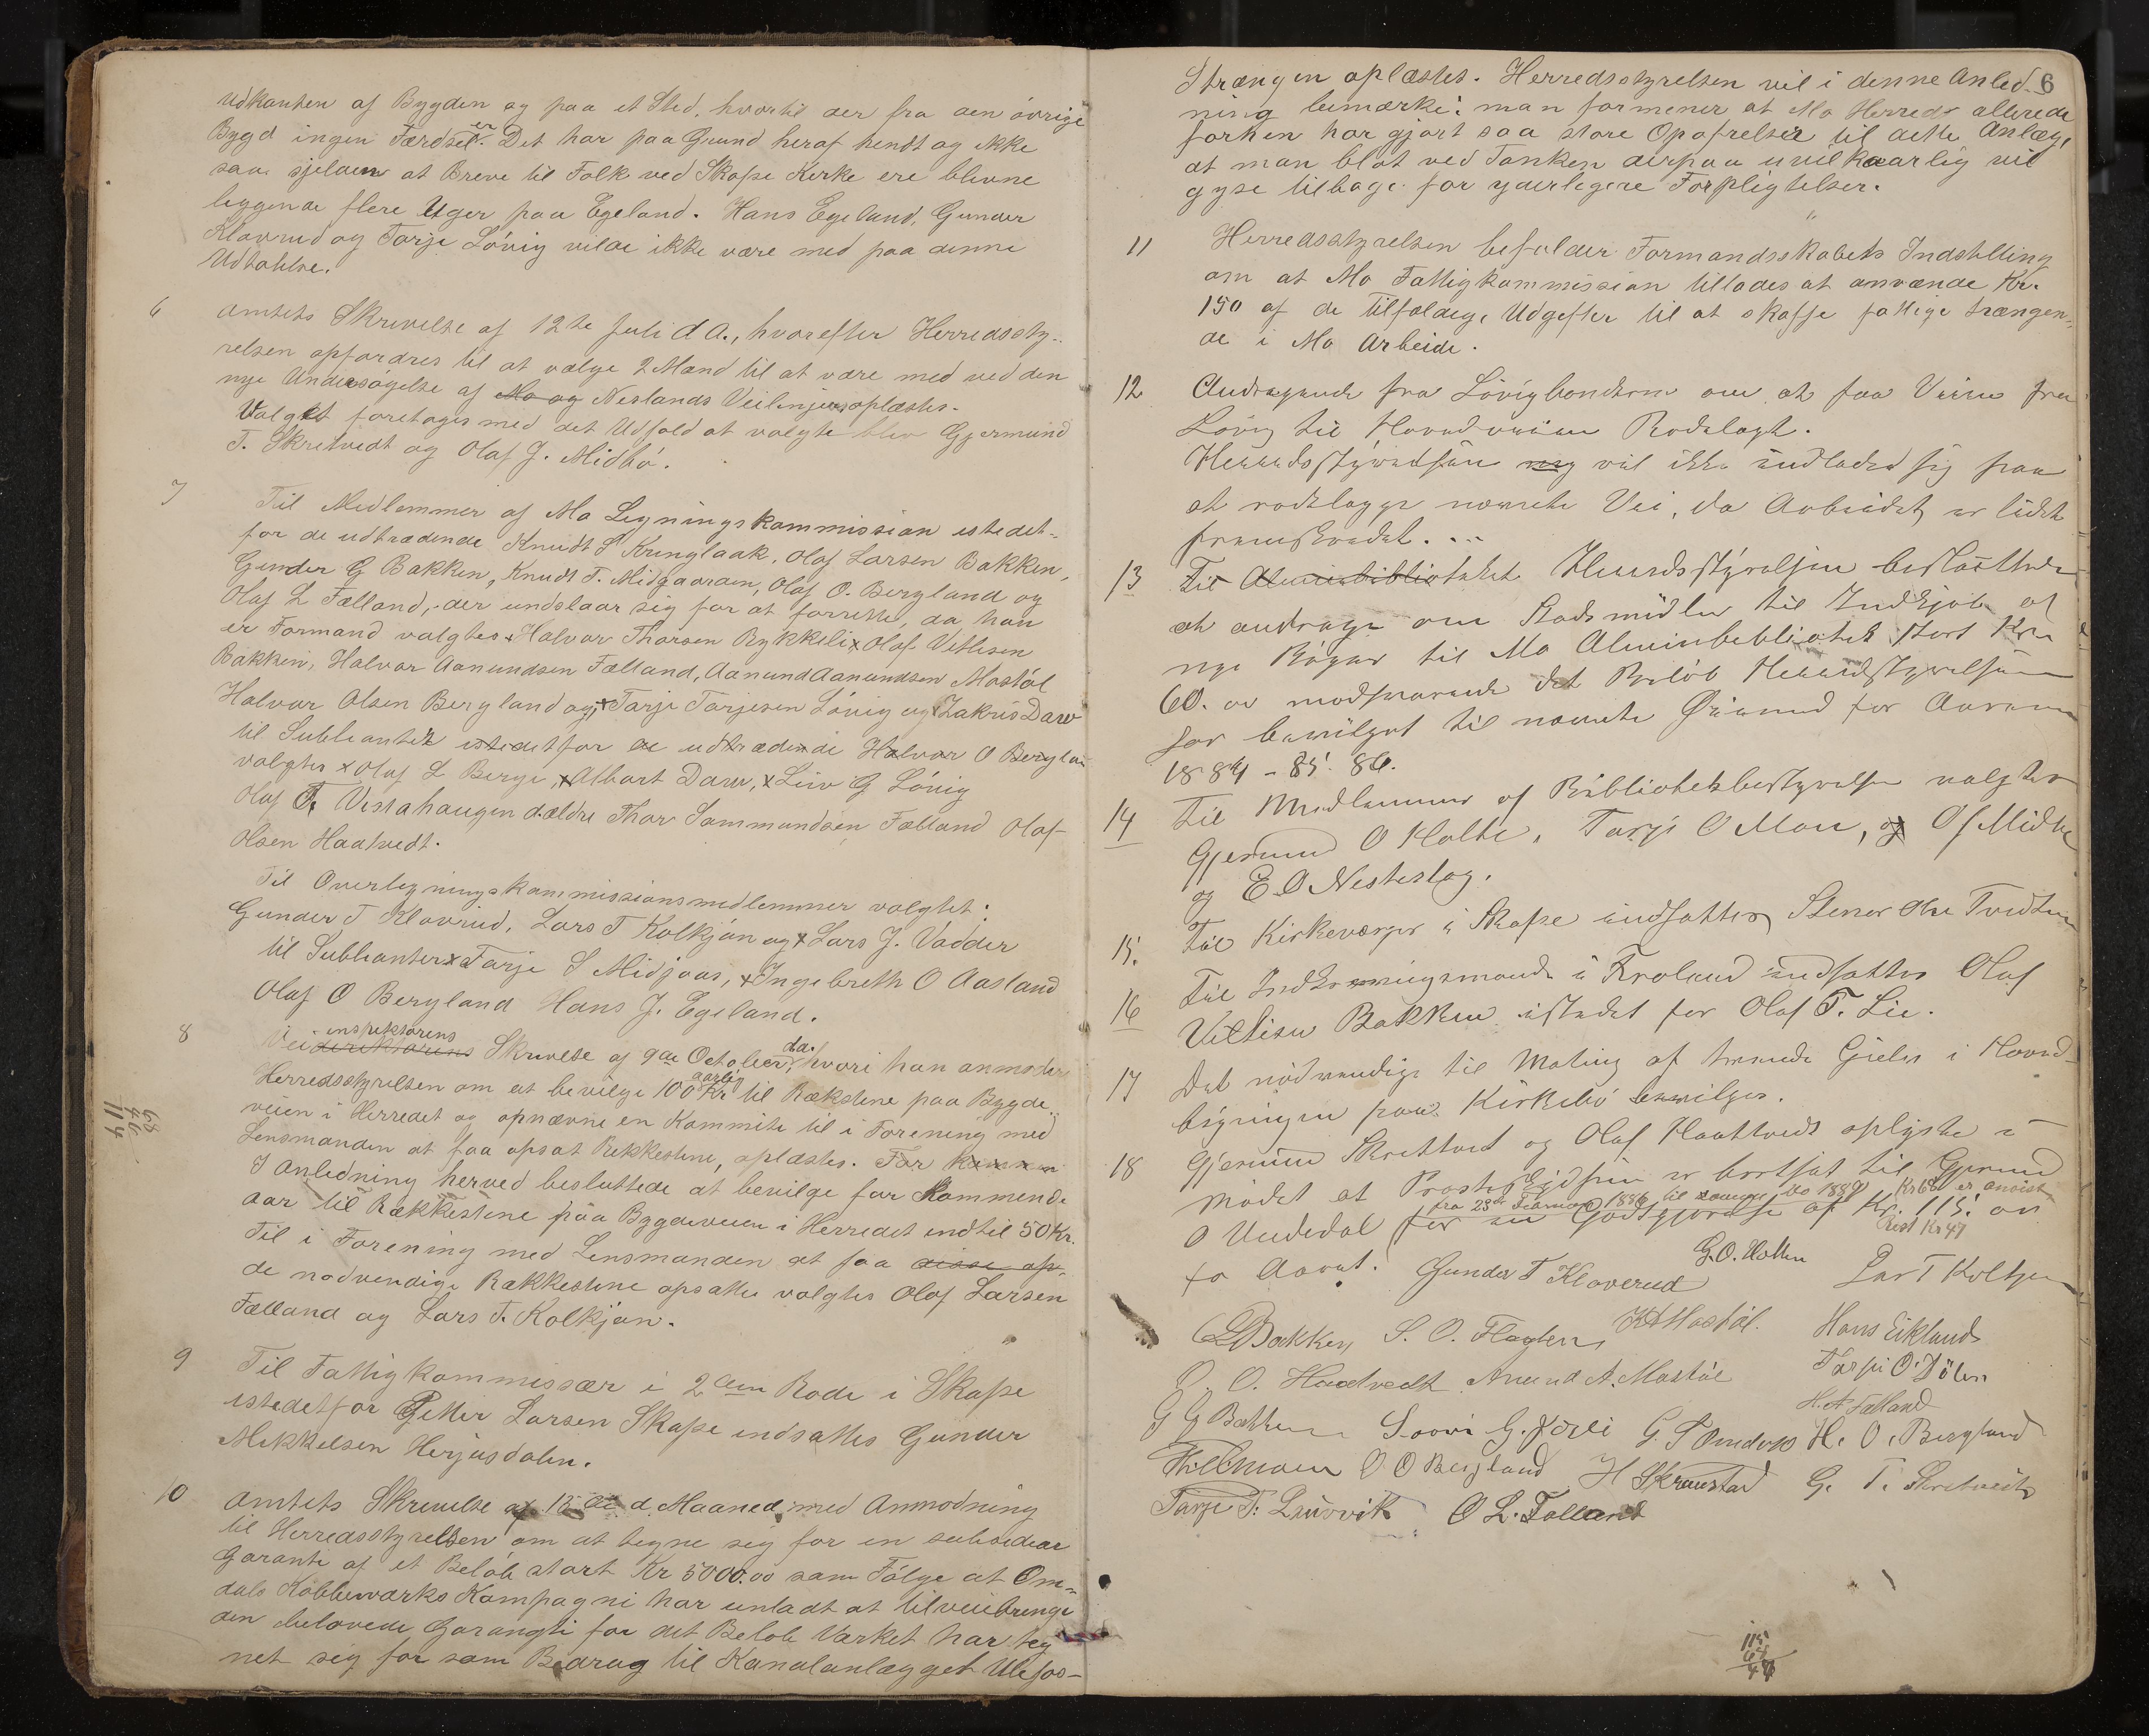 udkanten af Bygden og paa et Sted, hvortil der fra den övrige
Bygd ingen Færdsel er. Det har paa Grund heraf hendt og ikke
saa sjelden at Breve til Folk ved Skafse Kirke ere blevne
liggende flere Uger paa Egeland. Hans Egeland, Gunder
Klovrud og Tarje Lövig vilde ikke være med paa denne
Udtalelse.
6 Amtets Skrivelse af 12te Juli d A., hvorefter Herredssty-
relsen opfordres til at vælge 2 Mænd til at være med ved den
nye Undersögelse af Mo og Neslands Veilinjer oplæstes.
Valget foretoges med det Udfald at valgte blev Gjermund
T. Skretvedt og Olaf J. Midbö.
7 Til Medlemmer af Mo Ligningskommission istedet-
for de udtrædende Knudt S Kringlaak, Olaf Larsen Bakken,
Gunder G Bakken, Knudt T. Midgaarden, Olaf O. Bergland og
Olaf L Fælland, der undslaar sig for at forrette, da han
er Formand valgtes x Halvor Thorsen Rykkeli x Olaf Vetlesen
Bakken, Halvor Aanundsen Fælland, Aanund Aanundsen Mostöl
Halvor Olsen Bergland og x Tarje Tarjesen Lövig og x Zakris Darv
til Subleanter istedetfor de udtrædende Halvor O Bergland
valgtes x Olaf L Berge, x Albort Darv, x Leiv G Lövig
Olaf T. Vistahaugen d.ældre Thor Sammundsen Fælland Olaf
Olsen Haatvedt.
Til Overligningskommissionsmedlemmer valgtet:
Gunder T Klovrud, Lars T Kolkjön og x Lars J. Vadder
til Subleanter x Tarje S Midjaas, x Ingebreth O Aasland
Olaf O Bergland Hans J. Egeland.
8 Veidirektorens inspektorens Skrivelse af 9de October d.a. hvori han anmoder
Herredsstyrelsen om at bevilge 100 Kr aarlig til Rækstene paa Bygde-
veien i Herredet og opnævne en Kommite til i Forening med
Lensmanden at faa opsat Rekkestene, oplæstes. For kommen
I Anledning herved besluttede at bevilge for Kommende
aar til Rækkestene paa Bygdeveien i Herredet indtil 50 Kr.
Til i Forening med Lensmanden at faa disse op-
de nödvendige Rækkestene opsatte valgtes Olaf Larsen
Fælland og Lars T. Kolkjön.
9 Til Fattigkommissær i 2den Rode i Skafse
istedetfor Petter Larsen Skafse indsattes Gunder
Mikkelsen Herjusdalen.
10 Amtets Skrivelse af 12 de d. Maaned med Anmodning
til Herredsstyrelsen om at tegne sig for en subsidiær
Garanti af et Belöb stort Kr 5000.00 som Fölge at Om-
dals Kobberværks Kompagni har unladt at tilveiebringe
den belovede Garangti for det Belöb Værket har teg
net sig for som Bidrag til Kanalanlægget Ulefos-
68
46
114
6
Strængen oplæstes. Herredsstyrelsen vil i denne Anled-
ning bemærke: man formener at Mo Herreds allerede
forhen har gjort saa store Opofrelser til dette Anlæg,
at man blot ved Tanken derpaa uvilkaarlig vil
gyse tilbage for yderligere Forpligtelser.
11 Herredsstyrelsen befalder Formandsskabets Indstilling
om at Mo Fattigkommission tillades at anvende Kr.
150 af de Tilfældige Udgifter til at skaffe fattige trængen-
de i Mo Arbeide.
12 Andragende fra Lövigbönderne om at faa Veien fra
Lövig til Hovedveien Rodelagt.
Herredsstyrelsen vil ikke indlade sig paa
at rodelægge nævnte Vei, da Arbeidet er lidet
fremskredet.
13 Til Almuebibliotheket Herredsstyrelsen besluttede
at andrage om Stadsmidler til Indkjöb af
nye Böger til Mo Almuebibliotek stort Kr
60. er modsvarende det Belöb Herredsstyrelsen
har bevilget til nævnte Öiemed for Aarene
1884 - 85. 86.
14 Til Medlemmer af Bibliotekbestyrelse valgtes
Gjermund O Holte, Tarje O Moen, og O J Midbö
og E O Nesteslog.
15. Til Kirkeværger i Skafse indsattes Stener Olsen Tveiten
16 Til Indkrævningsmand i Froland indsattes Olaf
Vetlisen Bakken istedet for Olaf T. Lie.
17 Det nödvendige til Maling af tvende Gieler i Hoved-
bygningen paa Kirkebö bevilges.
18 Gjermund Skretvedt og Olaf Haatvedt oplyste i
Mödet at Prosteskydsen er bortsat til Gjermund
O Undedal for en Godtgjörelse af Kr. 115. on
fra 23de Februar 1886 til samme Do 1889 Kr 68 er anvist
Rest Kr 47
for Aaret.
G.O. Holten
Gunder T Kloverud Lars T Kolkjen
L Bakken S. O. Flagten K A Mostöl. Hans Eikland
O. O. Haatvedt Anund A. Mostöl Tarje O. Dölen
H. A Fælland
G G Bakken G. T Omdal H. O. Bergland
O O Bergland H Skravstad G. T. Skretvedt
Tarje T. Leirvik O L. Folland
115
68
47